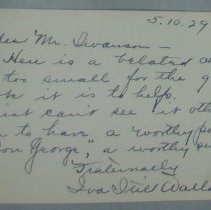 5.10.29
Dear Mr. Swanson —
Here is a belated a
too small for the g
k it is to help.
just can't see it oth
n to have a worthy
on George", a worthy
Fraternally
Iva Dill Walla